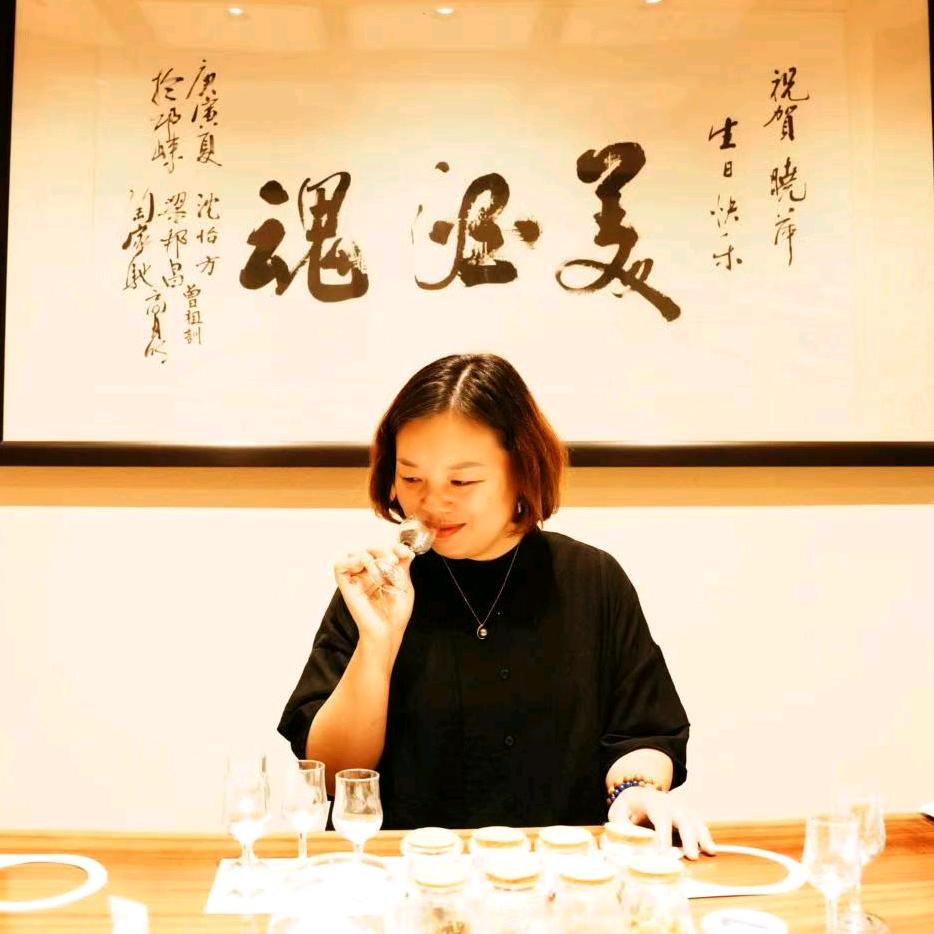 祝賀曉萍
生日快乐
美酒魂
庚寅夏
於邛崍
沈怡方
曾祖訓
梁邦昌
高月明
陶家馳